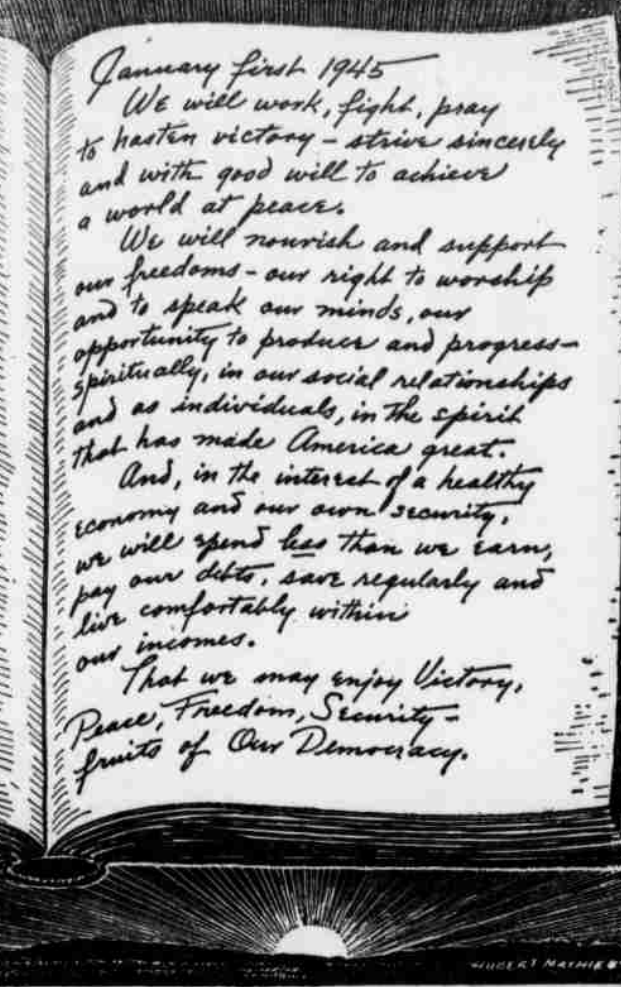 January first 1945
We will work, fight, pray
to hasten victory – strive sincerely
and with good will to achieve
a world at peace.
We will nourish and support
our freedoms – our right to worship
and to speak our minds, our
opportunity to produce and progress –
spiritually, in our social relationships
and as individuals, in the spirit
that has made America great.
And, in the interest of a healthy
economy and our own security,
we will spend less than we earn,
pay our debts, save regularly and
live comfortably within
our incomes.
That we may enjoy Victory,
Peace, Freedom, Security –
fruits of Our Democracy.
HUBERT MATHIEU